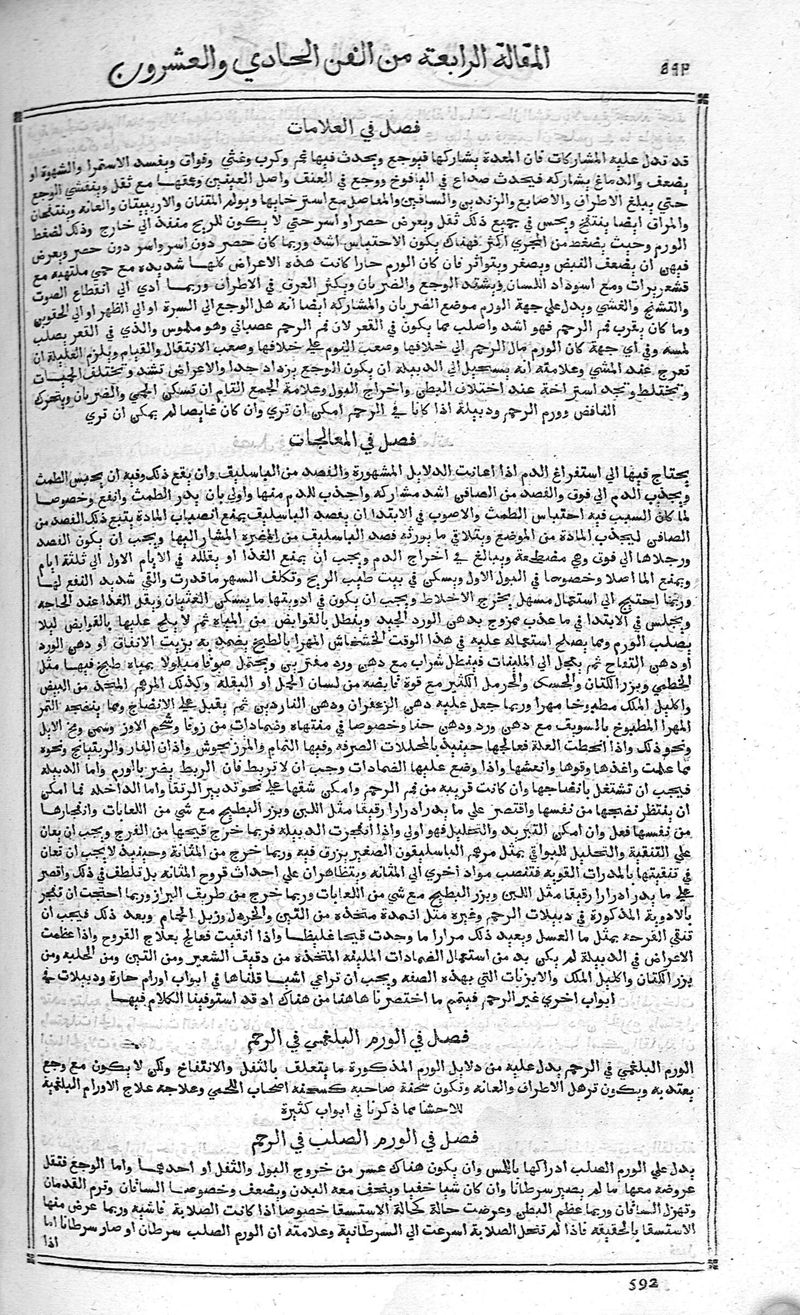 المقالة الرابعة من الفن الحادي والعشرون
٥٩٢
فصل في العلامات
قد تدل عليه المشاركات فان المعدة يشاركها فيوجع ويحدث فيها غم وكرب وغثي وفواق ويفسد الاستمرا والشهوة او
يضعف والدماغ يشاركه فيحدث صداع في اليافوخ ووجع في العنق واصل العينين وعمقها مع ثقل وينفشي الوجع
حتي يبلغ الاطراف والاصابع والزندين والساقين والمفاصل مع استرخايها ويولم المتنان والاربيتان والعانه وينتفخان
والمراق ايضا ينتفخ ويحس في جميع ذلك ثقل ويعرض حصر او اسر حتي لا يكون للريح منفذ الي خارج وذلك لضغط
الورم وحيث يضغط من المجري اكثر فهناك يكون الاحتباس اشد وربما كان حصر دون اسر واسر دون حصر ويعرض
فيهن ان يضعف النبض ويصغر ويتواتر فان كان الورم حارا كانت هذه الاعراض كلها شديده مع حمي ملتهبه مع
قشعريرات ومع اسوداد اللسان ويشتد الوجع والضربان ويكثر العرق في الاطراف وربما أدي الي انقطاع الصوت
والتشنج والغشي ويدل علي جهة الورم موضع الضربان والمشاركه ايضا انه هل الوجع الي السرة او الي الظهر او الي الحقوين
وما كان بقرب فم الرحم فهو اشد واصلب مما يكون في القعر لان فم الرحم عصباني وهو ملموس والذي في القعر يصلب
لمسه وفي أي جهة كان الورم مال الرحم الي خلافها وصعب النوم علي خلافها وصعب الانتقال والقيام ويلزم العليلة ان
تعرج عند المشي وعلامته انه يستحيل الي الدبيلة ان يكون الوجع يزداد جدا والاعراض تشتد وتختلف الحميات
وتختلط وتجد استراحة عند اختلاف البطن واخراج البول وعلامة الجمع التام ان تسكن الحمي والضربان ويتحرك
النافض وورم الرحم ودبيلة اذا كانا في الرحم امكن ان تري وان كان غايصا لم يمكن ان تري
فصل في المعالجات
يحتاج فيها الي استفراغ الدم اذا اعانت الدلايل المشهورة والفصد من الباسليق وان يقع ذلك وفيه ان يحبس الطمث
ويجذب الدم الي فوق والفصد من الصافن اشد مشاركه واجذب للدم منها واولي بان يدر الطمث وانفع وخصوصا
لما كان السبب فيه احتباس الطمث والاصوب في الابتدا ان يفصد الباسليق يمنع انصباب المادة يتبع ذلك الفصد من
الصافن ليجذب المادة من الموضع ويتلافي ما يورثه فصد الباسليق من المضره المشار اليها ويجب ان يكون الفصد
ورجلاها الي فوق وهي مضطجعة ويبالغ في اخراج الدم ويجب ان يمنع الغذا او يقلله في الايام الاول الي ثلثة ايام
ويمنع الما اصلا وخصوصا في اليول الاول ويسكن في بيت طيب الريح وتكلف السهر ما قدرت والقي شديد النفع لها
وربما احتيج الي استعمال مسهل يخرج الاخلاط ويجب ان يكون في ادويتها ما يسكن الغثيان ويقل الغذا عند الحاجه
ويجلس في الابتدا في ما عذب ممزوج بدهن الورد الجيد وينطل بالقوابض من المياه ثم لا يلح عليها بالقوابض ليلا
يصلب الورم ومما يصلح استعماله عليه في هذا الوقت الخشخاش المهرا بالطبخ يضمد به بزيت الانفاق او دهن الورد
او دهن التفاح ثم يعجل الي الملينات فينطل شراب مع دهن ورد مفترين ويحتمل صوفا مبلولا بمياه طبخ فيها مثل
الخطمي وبزر الكتان والحسك والحرمل الكثير مع قوة قابضه من لسان الحمل او البقله وكذلك المرهم المتخذ من البيض
واكليل الملك مطبوخا مهرا وربما جعل عليه دهن الزعفران ودهن الناردين ثم يقبل علي الانضاج ومما ينضجه التمر
المهرا المطبوخ بالسويق مع دهن ورد ودهن حنا وخصوصا في منتهاه وضمادات من زوفا وشحم الاوز وسمن ومخ الايل
ونحو ذلك واذا انحطت العلة فعالجها حينيذ بالمحللات الصرفه وفيها النمام والمرزنجوش واذان الفار والريتيانج ونحوه
مما علمت واغذها وقوها وانعشها واذا وضع عليها الضمادات وجب ان لا تربط فان الربط يضر بالورم واما الدبيله
فيجب ان تشتغل بانضاجها وان كانت قريبه من فم الرحم وامكن شقها علي نحو تدبير الرتقا واما الداخله فما امكن
ان ينتظر نضجها من نفسها واقتصر علي ما يدر ادرارا رقيقا مثل اللبن وبزر البطيخ مع شي من اللعابات وانفجارها
من نفسها فعل وان امكن التبريد والتحليل فهو اولي واذا انفجرت الدبيله فربما خرج قيحها من الفرج ويجب ان يعان
علي التنقية والتحليل للبواقي بمثل مرهم الباسليقون الصغير يزرق فيه وربما خرج من المثانة وحينيذ لا يجب ان تعان
في تنقيتها بالمدرات القويه فتنصب مواد اخري الي المثانه ويتظاهران علي احداث قروح المثانه بل تلطف في ذلك واقصر
علي ما يدر ادرارا رقيقا مثل اللبن وبزر البطيخ مع شي من اللعابات وربما خرج من طريق البراز وربما احتجت ان تفجر
بالادوية المذكورة في دبيلات الرحم وغيره مثل اضمدة متخذه من التين والخردل وزبل الحمام وبعد ذلك فيجب ان
تنقي القرحه بمثل ما العسل ويعيد ذلك مرارا ما وجدت قيحا غليظا واذا انقيت فعالج بعلاج القروح واذا عظمت
الاعراض في الدبيلة لم يكن بد من استعمال الضمادات الملينه المتخذه من دقيق الشعير ومن التين ومن الحلبه ومن
بزر الكتان واكليل الملك والابزنات التي بهذه الصفه ويجب ان تراعي اشيا قلناها في ابواب اورام حارة ودبيلات في
ابواب اخري غير الرحم فيتم ما اختصرنا هاهنا من هناك اد قد استوفينا الكلام فيها
فصل في الورم البلغمي في الرحم
الورم البلغمي في الرحم يدل عليه من دلايل الورم المذكورة ما يتعلق بالثقل والانتفاخ ولكن لا يكون مع وجع
يعتد به ويكون ترهل الاطراف والعانه وتكون سحنة صاحبه كسحنه اصحاب اللحمي وعلاجه علاج الاورام البلغمية
للاحشا مما ذكرنا في ابواب كثيرة
فصل في الورم الصلب في الرحم
يدل علي الورم الصلب ادراكها باللمس وان يكون هناك عسر من خروج البول والثفل او احديهما واما الوجع فتقل
عروضه معها ما لم يصير سرطانا وان كان شيا خفيا وينحف معه البدن ويضعف وخصوصا الساقان وترم القدمان
وتهزل الساقان وربما عظم البطن وعرضت حالة كحالة الاستسقا خصوصا اذا كانت الصلابة فاشيه وربما عرض منها
الاستسقا بالحقيقه فاذا لم تنحل الصلابة اسرعت الي السرطانية وعلامته ان الورم الصلب سرطان او صار سرطانا اما
اذا
592